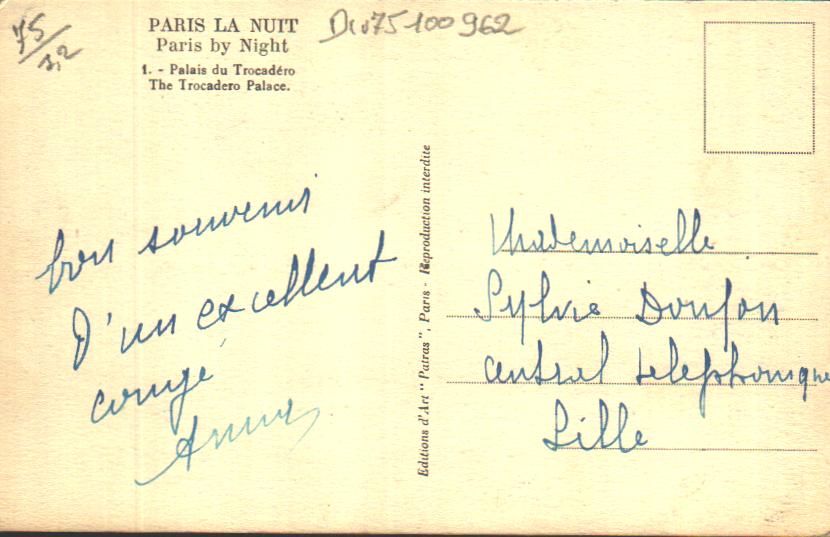 75/32
PARIS LA NUIT
Paris by Night
1. - Palais du Trocadéro
The Trocadero Palace.
Div75100962
bon souvenir
d'un excellent
congé
Editions d'Art "Patras", Paris - Reproduction interdite
Mademoiselle
Sylvie
central telephonique
Lille